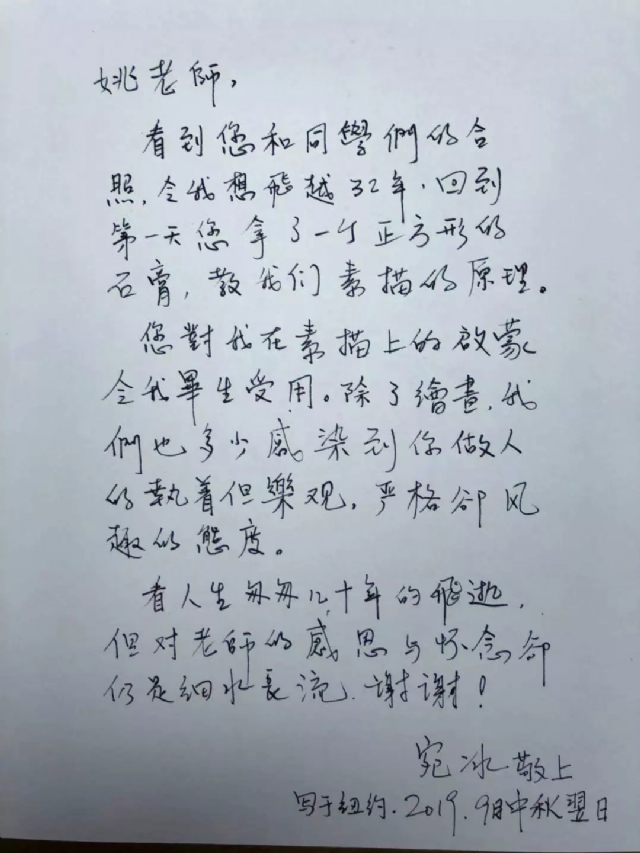 姚老師，
看到您和同學們的合
照，令我想飛越32年，回到
第一天您拿了一个正方形的
石膏，教我们素描的原理。
您對我在素描上的啟蒙
令我畢生受用。除了繪畫，我
們也多少感染到你做人
的執着但樂观，严格卻风
趣的態度。
看人生匆匆几十年的飛逝，
但对老師的感思与怀念卻
仍是細水長流，谢谢！
宛冰敬上
写于纽约．2019．9月中秋翌日